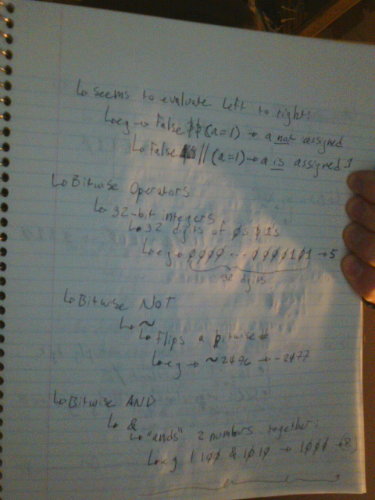 ↳ Seems to evaluate left to right:
↳ eg → False && (a=1) → a not assigned
↳ False || (a=1) → a is assigned 1
↳ Bitwise Operators
↳ 32-bit integers.
↳ 32 digits of 0s & 1s
↳ eg → 0000 ... 0000101 → 5
32 digits
↳ Bitwise NOT
↳ ~
↳ Flips a bitwise #
↳ eg → ~2476 → -2477
↳ Bitwise AND
↳ &
↳ "ands" 2 numbers together.
↳ eg 1100 & 1010 → 1000 (8)